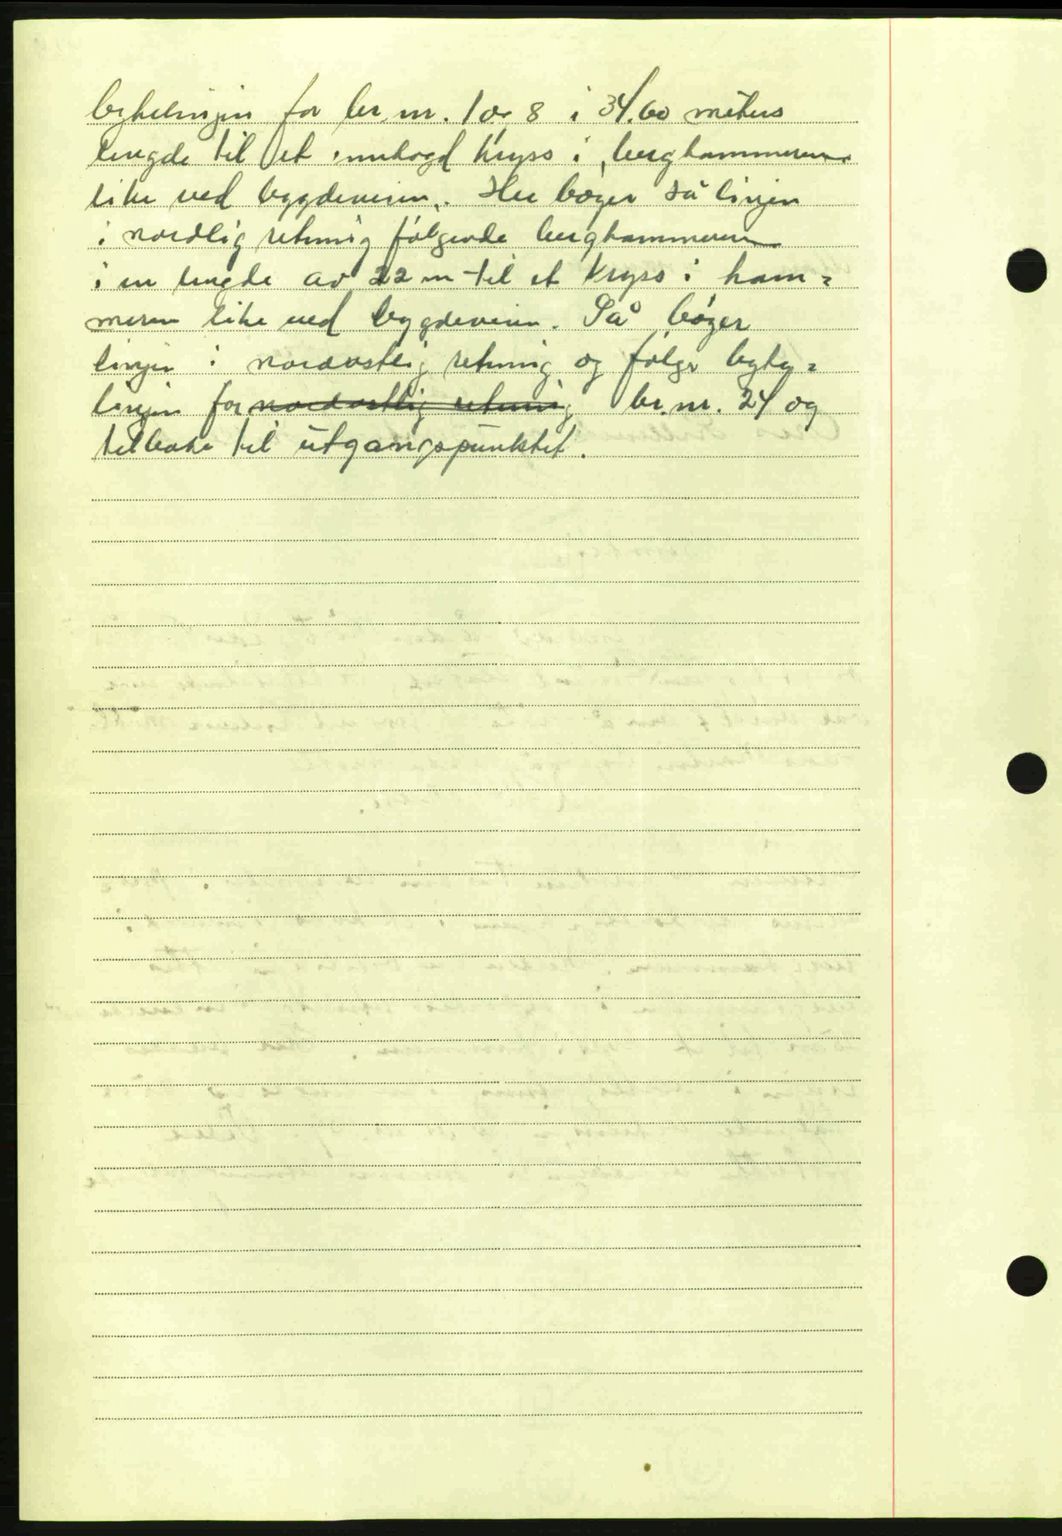 bytelinjen for br. nr. 1 og 8 i 34.60 meters
lengde til et innhogd kryss i berghammeren
like ved bygdeveien. Her bøger så linjen
i nordlig retning følgende berghammeren
i en lengde av 22 m til et kryss i ham=
meren like ved bygdeveien. Så bøger
linjen i nordøstlig retning og følger byte=
linjen for nordøstlig retning br. nr. 24 og
tilbake til utgangspunktet.